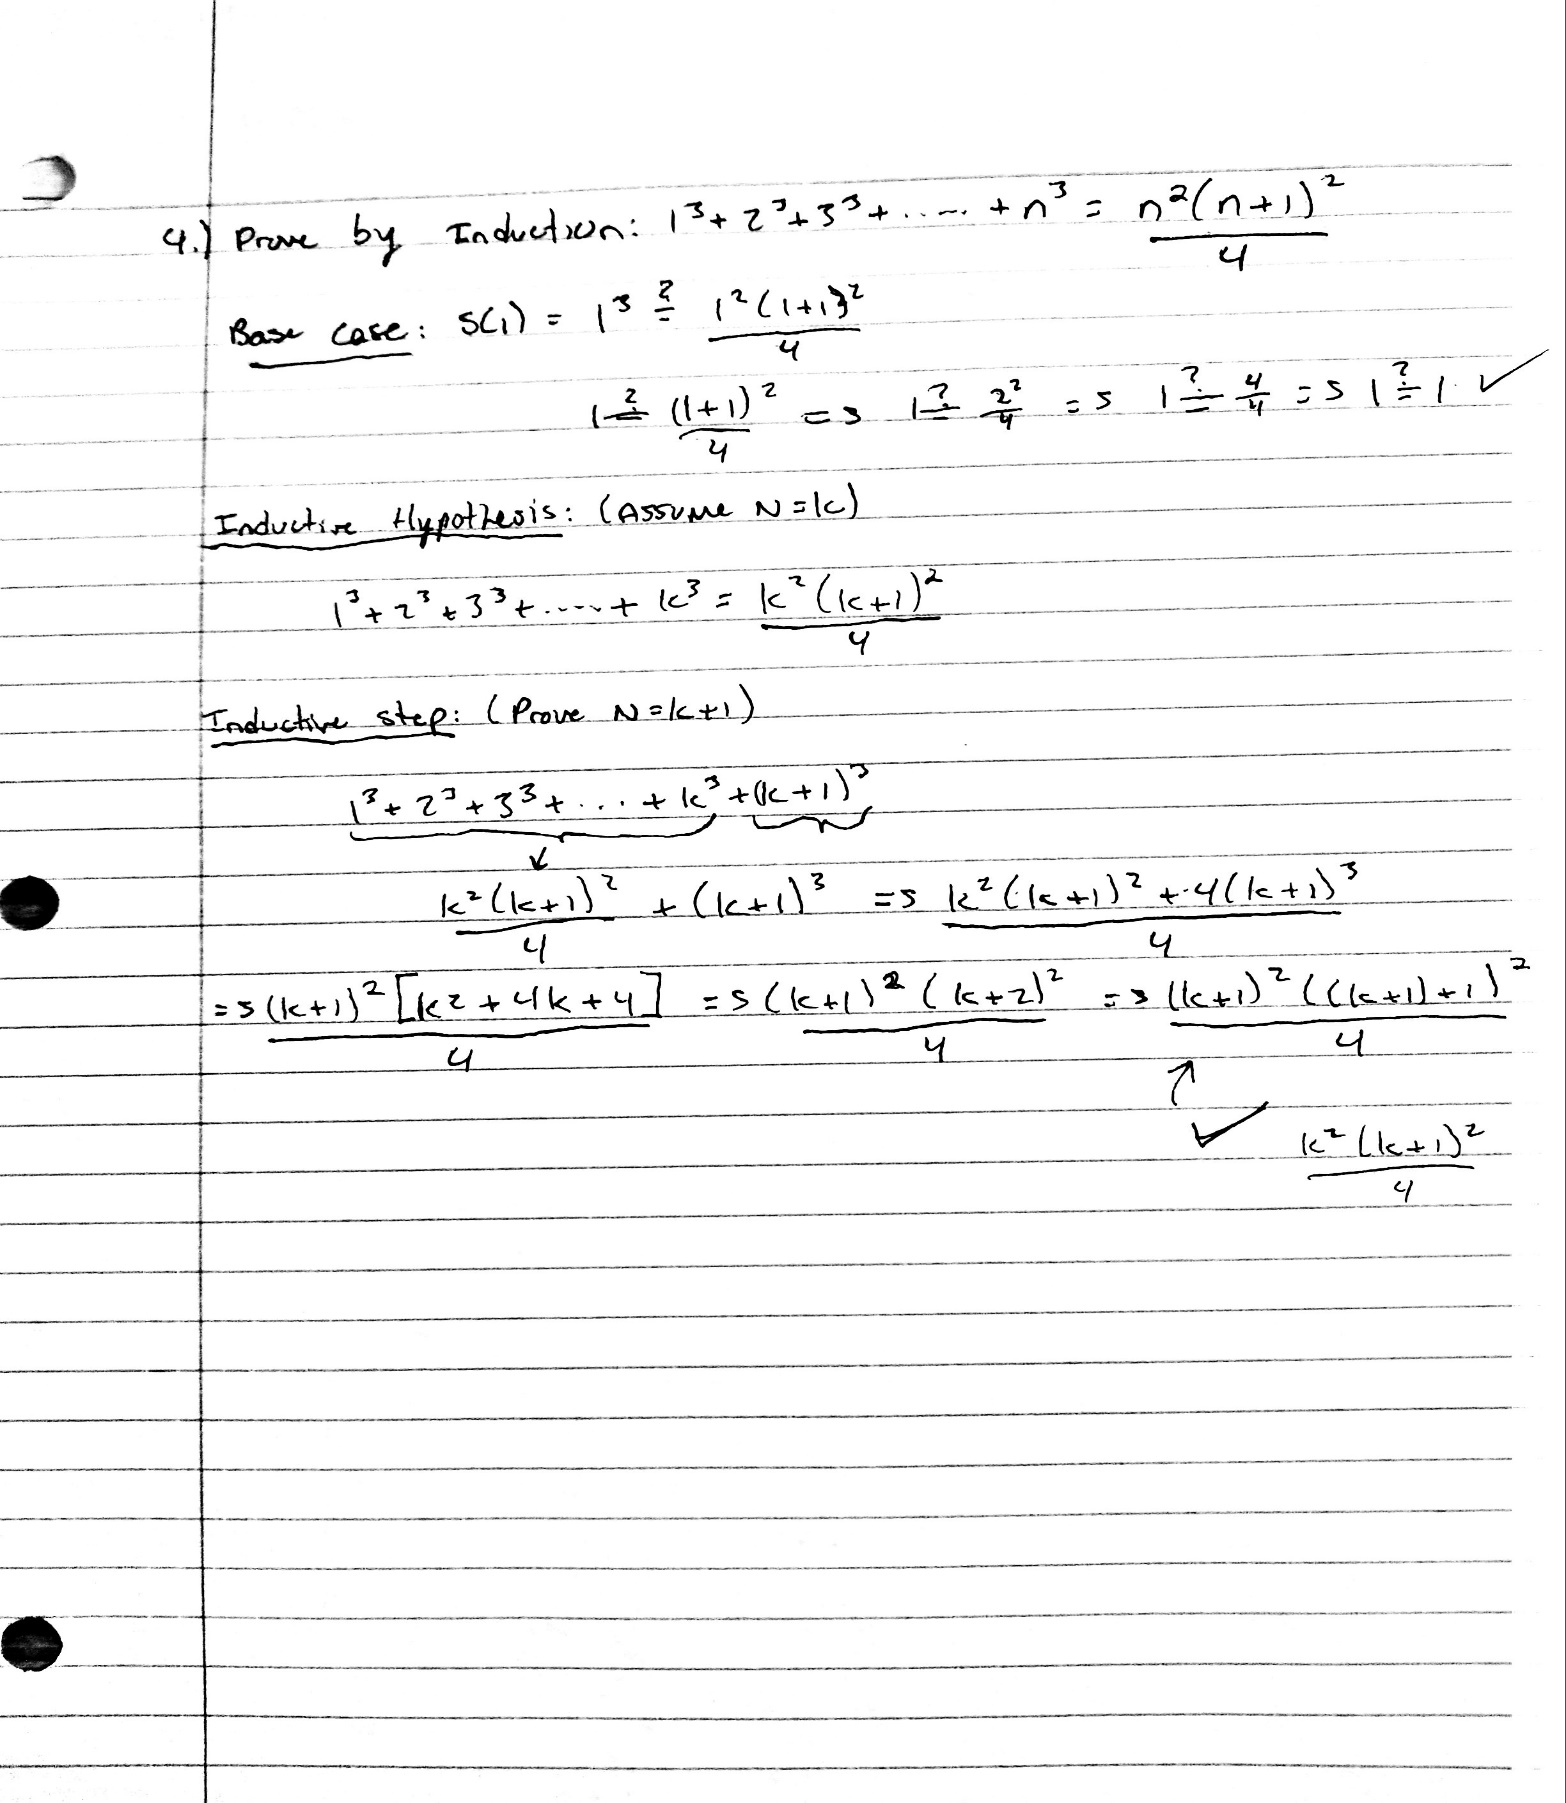 4.) Prove by Induction: 1³ + 2³ + 3³ + ..... + n³ = n²(n+1)²/4
Base case: S(1) = 1³ ≟ 1²(1+1)²/4
1 ≟ (1+1)²/4 => 1 ≟ 2²/4 => 1 ≟ 4/4 => 1 ≟ 1. ✓
Inductive Hypothesis: (Assume N=k)
1³ + 2³ + 3³ + ..... + k³ = k²(k+1)²/4
Inductive step: (Prove N=k+1)
1³ + 2³ + 3³ + ... + k³ + (k+1)³
↙
k²(k+1)²/4 + (k+1)³ => k²(k+1)² + 4(k+1)³/4
=> (k+1)²[k² + 4k + 4]/4 => (k+1)²(k+2)²/4 => (k+1)²((k+1)+1)²/4
↑
✓ k²(k+1)²/4